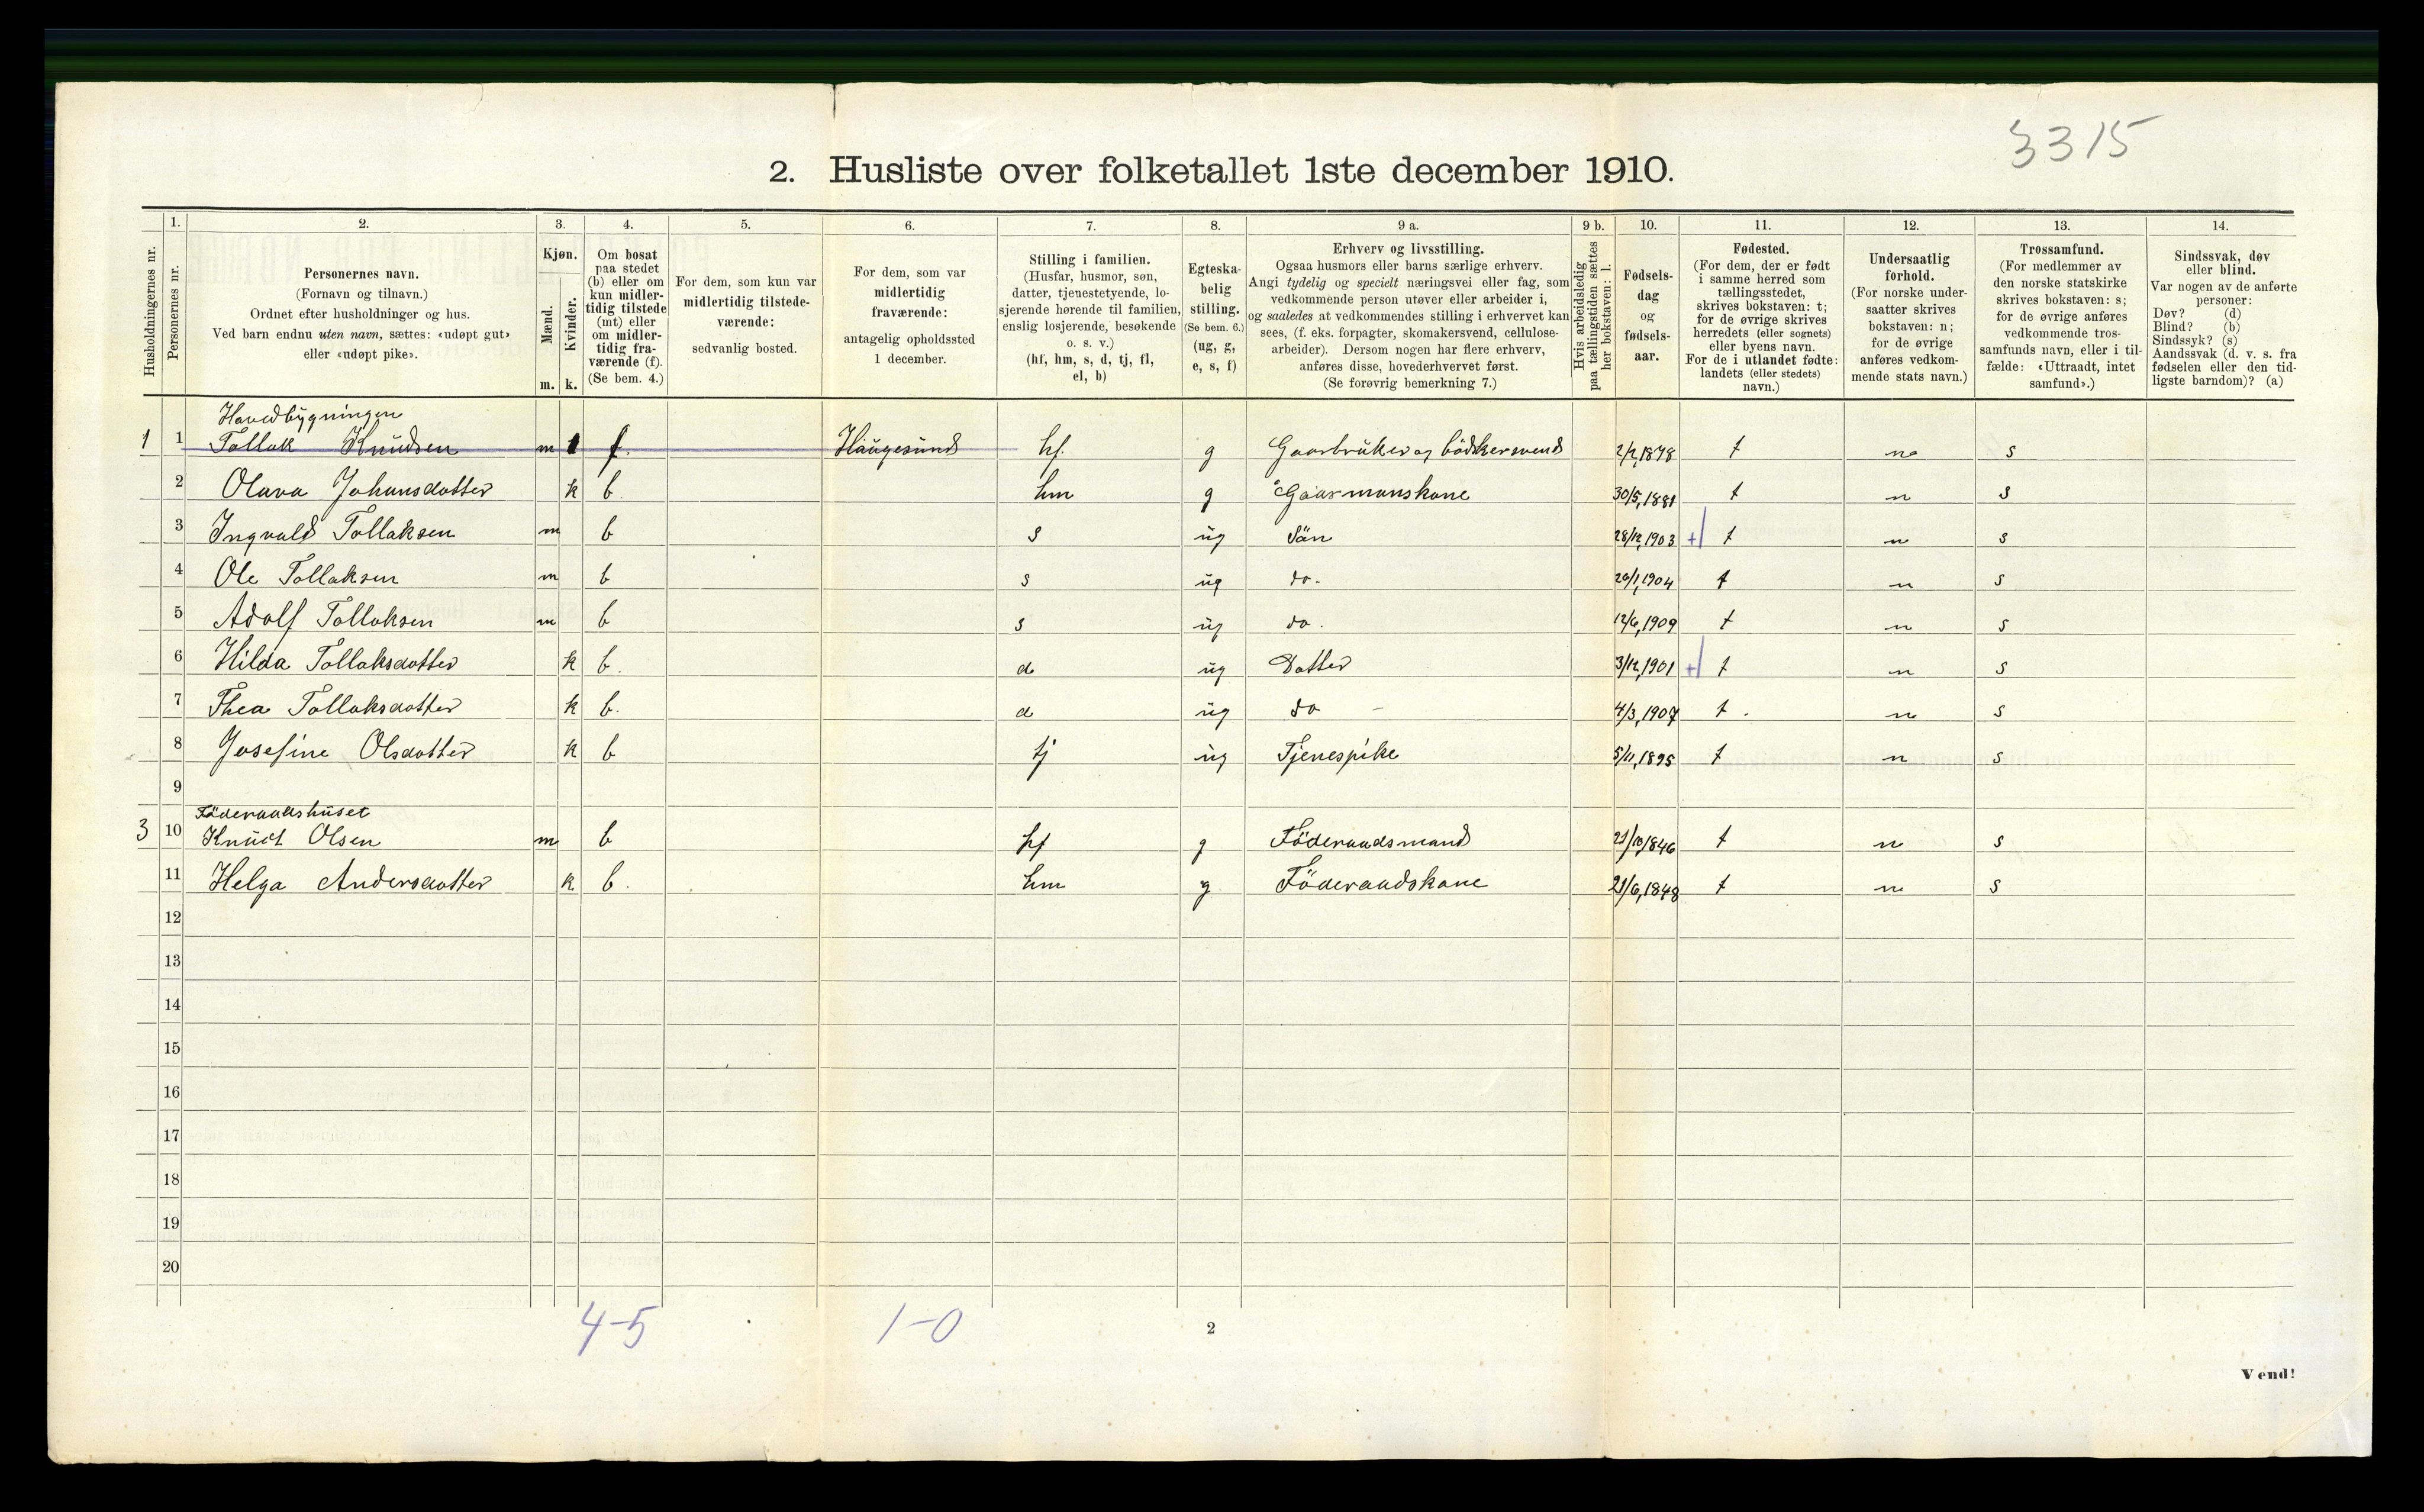 3315
2. Husliste over folketallet 1ste december 1910.
1. 2. 3. 4. 5. 6. 7. 8. 9 a. 9 b. 10. 11. 12. 13. 14.
Husholdningernes nr.
Personernes nr.
Personernes navn.
(Fornavn og tilnavn.)
Ordnet efter husholdninger og hus.
Ved barn endnu uten navn, sættes: «udøpt gut»
eller «udøpt pike».
Kjøn.
Mænd.
Kvinder.
m. k.
Om bosat
paa stedet
(b) eller om
kun midler-
tidig tilstede
(mt) eller
om midler-
tidig fra-
værende (f).
(Se bem. 4.)
For dem, som kun var
midlertidig tilstede-
værende:
sedvanlig bosted.
For dem, som var
midlertidig
fraværende:
antagelig opholdssted
1 december.
Stilling i familien.
(Husfar, husmor, søn,
datter, tjenestetyende, lo-
sjerende hørende til familien,
enslig losjerende, besøkende
o. s. v.)
(hf, hm, s, d, tj, fl,
el, b)
Egteska-
belig
stilling.
(Se bem. 6.)
(ug, g,
e, s, f)
Erhverv og livsstilling.
Ogsaa husmors eller barns særlige erhverv.
Angi tydelig og specielt næringsvei eller fag, som
vedkommende person utøver eller arbeider i,
og saaledes at vedkommendes stilling i erhvervet kan
sees, (f. eks. forpagter, skomakersvend, cellulose-
arbeider). Dersom nogen har flere erhverv,
anføres disse, hovederhvervet først.
(Se forøvrig bemerkning 7.)
Hvis arbeidsledig
paa tællingstiden sættes
her bokstaven: l.
Fødsels-
dag
og
fødsels-
aar.
Fødested.
(For dem, der er født
i samme herred som
tællingsstedet,
skrives bokstaven: t;
for de øvrige skrives
herredets (eller sognets)
eller byens navn.
For de i utlandet fødte:
landets (eller stedets)
navn.)
Undersaatlig
forhold.
(For norske under-
saatter skrives
bokstaven: n;
for de øvrige
anføres vedkom-
mende stats navn.)
Trossamfund.
(For medlemmer av
den norske statskirke
skrives bokstaven: s;
for de øvrige anføres
vedkommende tros-
samfunds navn, eller i til-
fælde: «Uttraadt, intet
samfund».)
Sindssvak, døv
eller blind.
Var nogen av de anførte
personer:
Døv? (d)
Blind? (b)
Sindssyk? (s)
Aandssvak (d. v. s. fra
fødselen eller den tid-
ligste barndom)? (a)
Hovedbygningen
1 1 Tollak Knudsen m 1 f. Haugesund hf. g Gaarbruker og bödkersvend 2/2,1878 t n s
2 Olava Johansdatter k b. hm g Gaarmanskone 30/5,1881 t n s
3 Ingvald Tollaksen m b s ug Sön 28/12,1903 + t n s
4 Ole Tollaksen m b s ug do. 20/1,1904 t n s
5 Adolf Tollaksen m b s ug do. 12/6,1909 t n s
6 Hilda Tollaksdatter k b. d ug Datter 3/12,1901 + t n s
7 Thea Tollaksdatter k b. d ug do - 4/3,1907 t. n s
8 Josefine Olsdatter k b tj ug Tjenespike 5/11,1895 t n s
9
Föderaadshuset
3 10 Knudt Olsen m b hf g Föderaadsmand 21/10,1846 t n s
11 Helga Andersdatter k b. hm g Föderaadskone 21/6,1848 t n s
12
13
14
15
16
17
18
19
20
4-5 1-0
2
Vend!